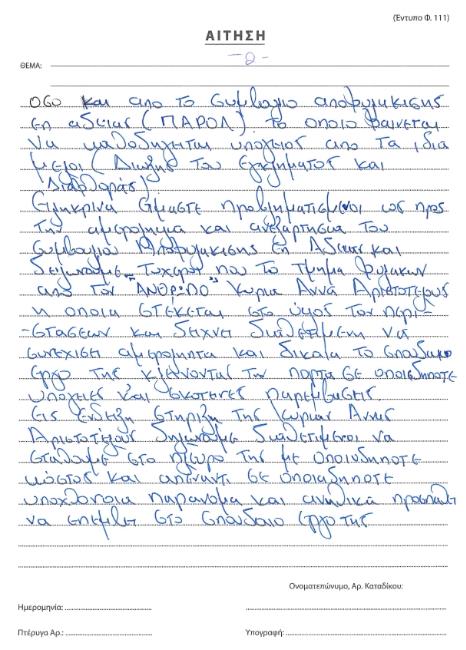 (Έντυπο Φ. 111)
ΑΙΤΗΣΗ
-2-
ΘΕΜΑ:
όσο και απο το Συμβουλιο αποφυλακισης
επ αδειας (ΠΑΡΟΛ) το οποιο φαινεται
να καθοδηγειται υπογειος απο τα ιδια
μεσα (Διωξης του εγκληματος και
Διαφθορας)
Ειλικρινα ειμαστε προβληματισμενοι ως προς
την αμεροληψια και ανεξαρτησια του
Συμβουλιου Αποφυλακισης επ Αδειας και
δηλωνουμε που το τμημα φυλακων
απο τον "ΑΝΘΡΩΠΟ" Κυρια Αννα Αριστοτελους
η οποια στεκεται στο υψος των περι-
-στασεων και δειχνει διαθετιμενη να
συνεχισει αμεροληπτα και δικαια το σπουδαιο
εργο της κλεινοντας την πορτα σε οποιεσδηποτε
υπογειες και σκοτεινες παρεμβασεις.
Εις ενδειξη στηριξη της κυριας Αννας
Αριστοτελους δηλωνουμε διαθετιμενοι να
σταθουμε στο πλευρο της με οποιονδηποτε
κοστος και απεναντι σε οποιαδηποτε
υποχθονια παρανομα και ανηθικα προσπαθει
να επεμβει στο σπουδαιο εργο της
Ονοματεπώνυμο, Αρ. Καταδίκου:
Ημερομηνία:
Πτέρυγα Αρ.: Υπογραφή: